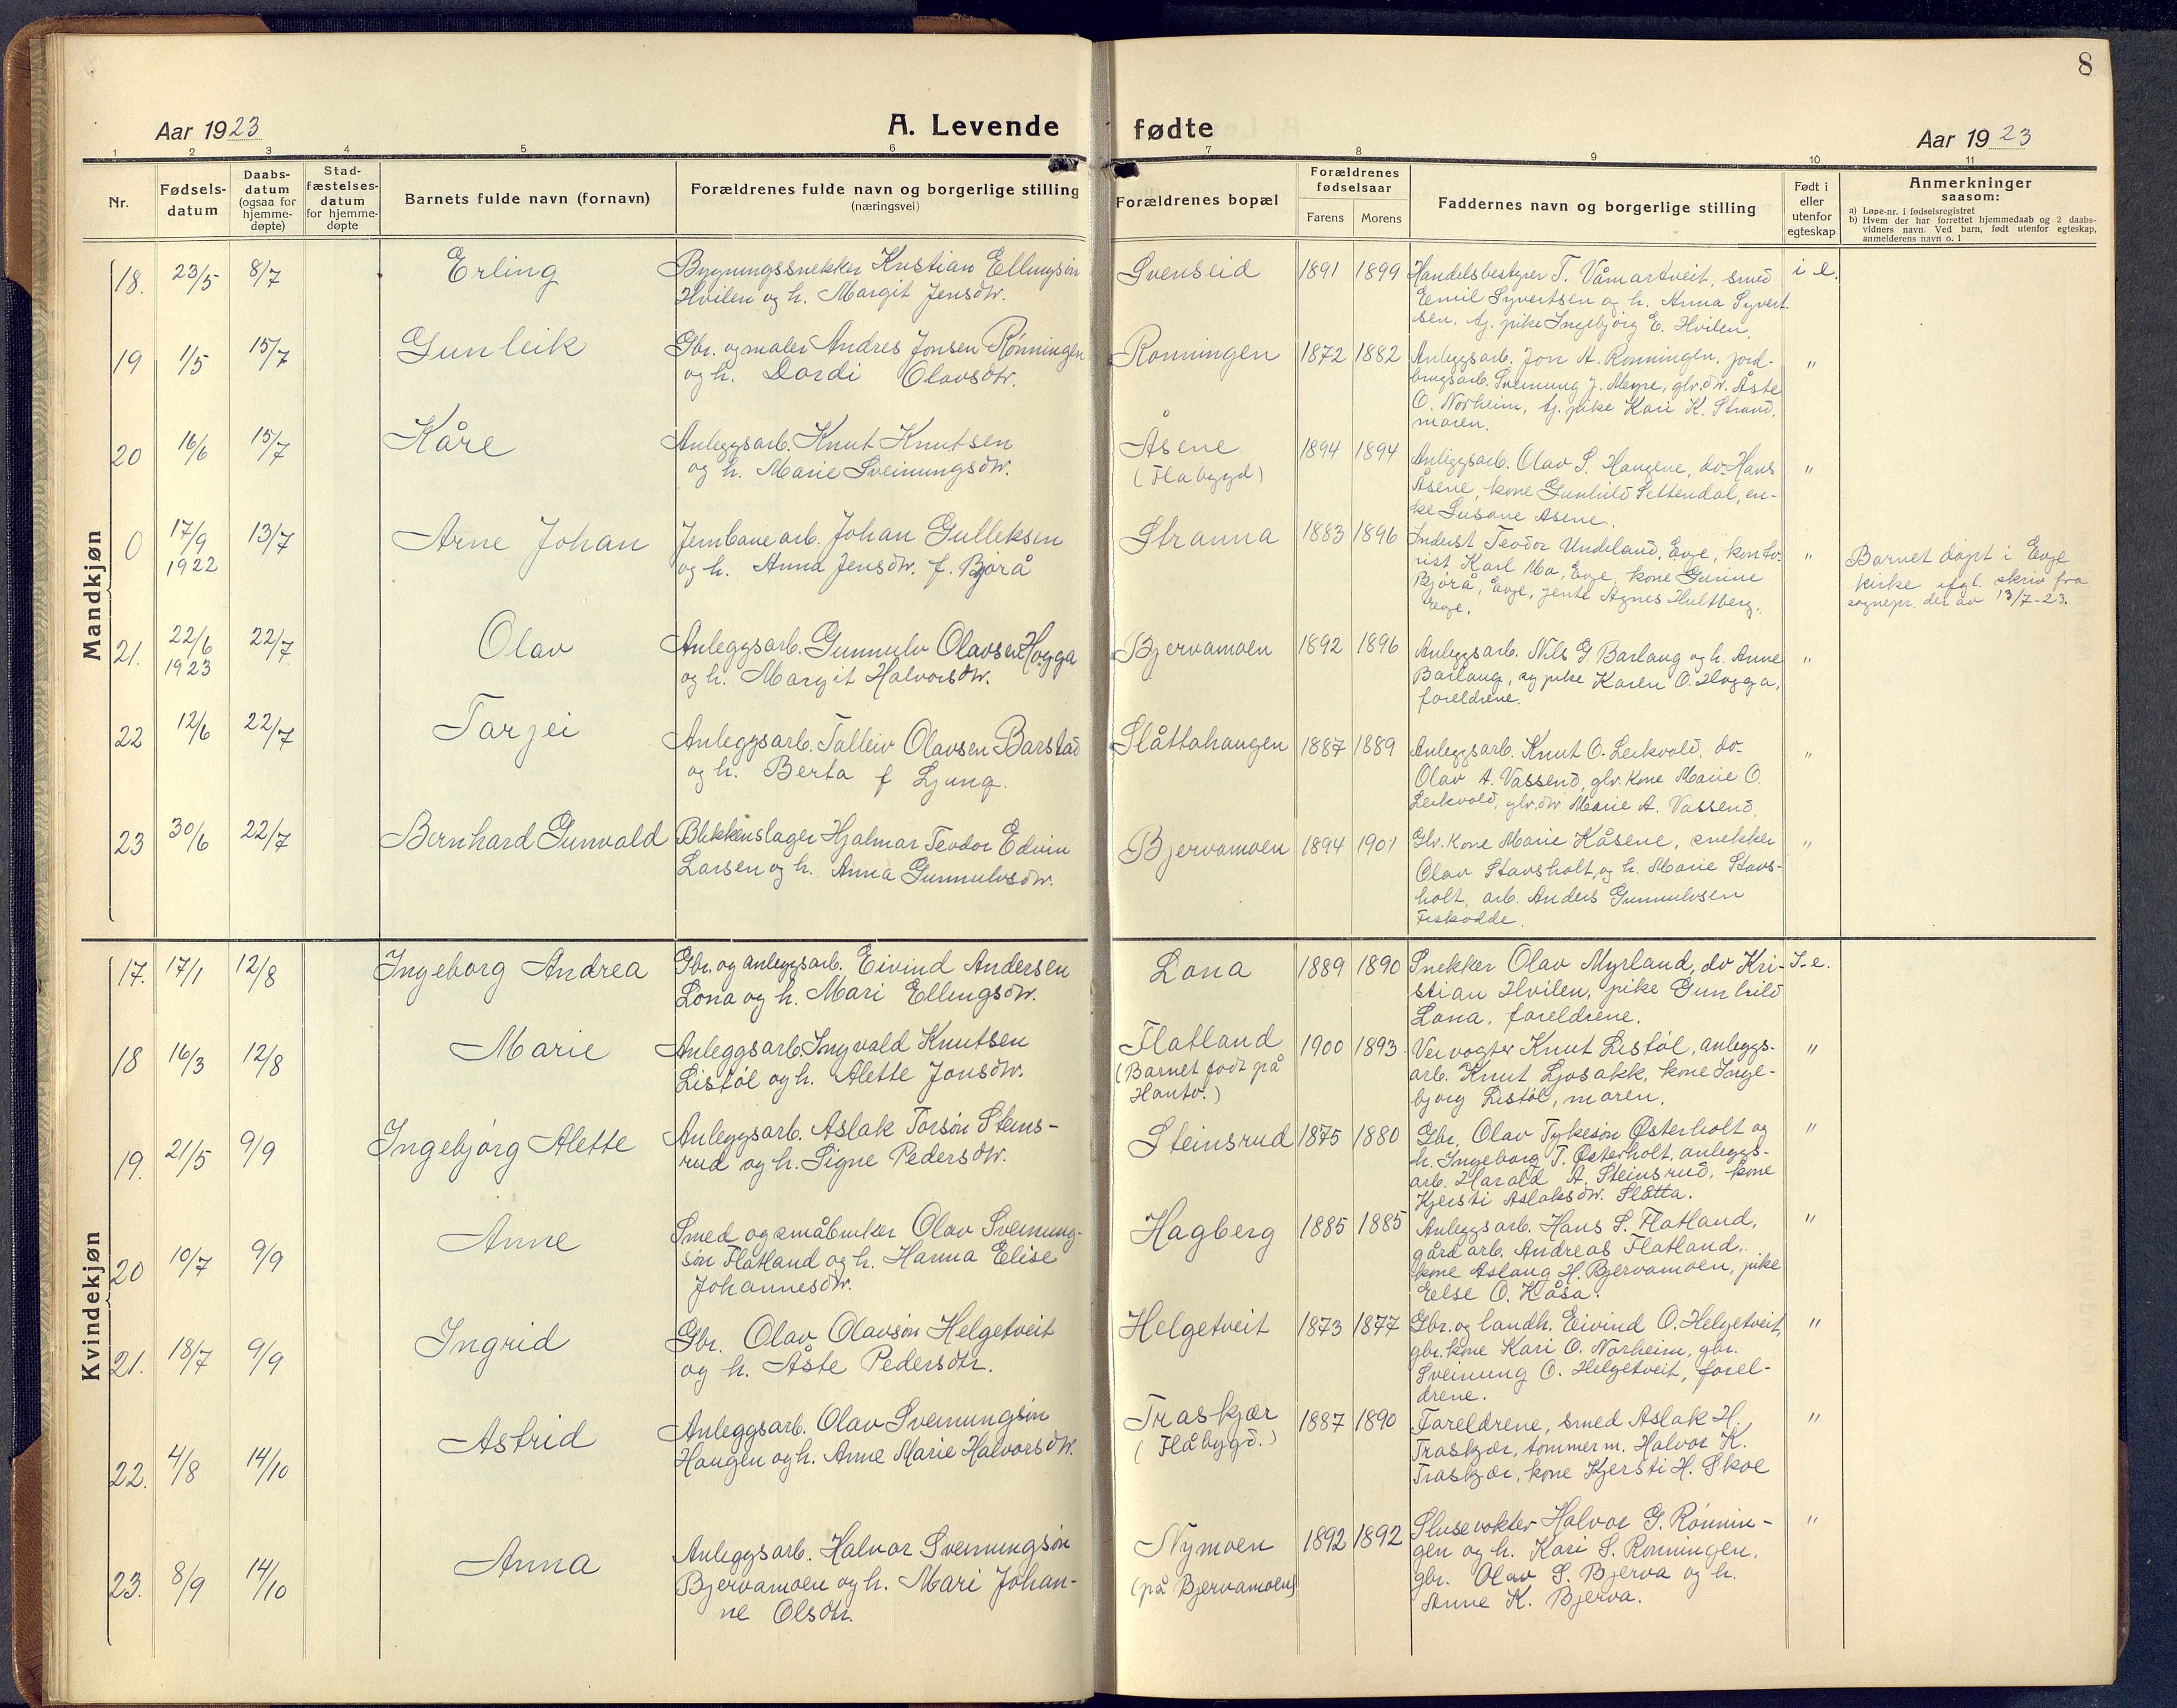 8
Aar 1923
A. Levende fødte
Aar 1923
1 2 3 4 5 6 7 8 9 10 11
Nr.
Fødsels-
datum
Daabs-
datum
(ogsaa for
hjemme-
døpte)
Stad-
fæstelses-
datum
for hjemme-
døpte
Barnets fulde navn (fornavn)
Forældrenes fulde navn og borgerlige stilling
(næringsvei)
Forældrenes bopæl
Forældrenes
fødselsaar
Farens Morens
Faddernes navn og borgerlige stilling
Født i
eller
utenfor
egteskap
Anmerkninger
saasom:
a) Løpe-nr. i fødselsregistret
b) Hvem der har forrettet hjemmedaab og 2 daabs-
vidners navn. Ved barn, født utenfor egteskap,
anmelderens navn o. l
Mandkjøn
18. 23/5 8/7 Erling
Bygningssnekker Kristian Ellingsøn
Hvilen og h. Margit Jensdtr.
Svenseid 1891 1899
Handelsbestyrer T. Våmartveit, smed
Emil Syvertsen og h. Anna Syvert
sen, tj. pike Ingebjørg E. Hvilen.
i e.
19 1/5 15/7 Gunleik
Gbr. og maler Andres Jonsen Rønningen
og h. Dordi Olavsdtr.
Rønningen 1872 1882
Anleggsarb. Jon A. Rønningen, jord-
brugsarb. Sveinung J. Meyre, gbr. dtr. Åste
O. Norheim, tj. pike Kari K. Strand,
moren.
"
20 16/6 15/7 Kåre
Anleggsarb. Knut Knutsen
og h. Marie Sveinungsdtr.
Åsene
(Flabygd)
1894 1894
Anleggsarb. Olav S. Haugene, do- Hans
Åsene, kone Gunhild Settendal, en-
ke Susane Åsene.
"
0 17/9
1922
13/7 Arne Johan
Jernbanearb. Johan Gulleksen
og h. Anna Jensdtr. f. Bjørå
Stranna 1883 1896
Inderst Teodor Undeland, Evje, kontо-
rist Karl Mo, Evje, kone Gurine
Bjørå, Evje, jente Agnes Hultberg,
Evje.
"
Barnet døpt i Evje
kirke ifgl. skriv fra
sognepr. der av 13/7-23.
21. 22/6
1923
22/7 Olav
Anleggsarb. Gunnulv Olavsen Hogga
og h. Margit Halvorsdtr.
Bjervamoen 1892 1896
Anleggsarb. Nils G. Barlaug og h. Anne
Barlaug, og pike Karen O. Hogga,
foreldrene.
"
22 12/6 22/7 Tarjei
Anleggsarb. Talleiv Olavsen Barstad
og h. Berta f Ljung.
Slåttahaugen 1887 1889
Anleggsarb. Knut O. Leikvold, do-
Olav A. Vassend, gbr. kone Marie O.
Leikvold, gbr. dtr Marie A. Vassend.
"
23 30/6 22/7 Bernhard Gunvald
Blikkenslager Hjalmar Teodor Edvin
Larsen og h. Anna Gunnulvsdtr.
Bjervamoen 1894 1901
Gbr. kone Marie Kåsene, snekker
Olav Stavsholt, og h. Marie Stavs-
holt, arb. Anders Gunnulvsen
Fiskodde.
"
Kvindekjøn
17. 17/1 12/8 Ingeborg Andrea
Gbr. og anleggsarb. Eivind Andersen
Lona og h. Mari Ellingsdtr.
Lona 1889 1890
Snekker Olav Myrland, do Kri-
stian Hvilen, pike Gunhild
Lona, foreldrene.
I e.
18 16/3 12/8 Marie
Anleggsarb. Ingvald Knutsen
Listøl og h. Alette Jonsdtr.
Flatland
(Barnet født på
Hauto.)
1900 1893
Veivogter Knut Listøl, anleggs-
arb. Knut Ljosakk, kone Inge-
bjørg Listøl, moren.
"
19. 21/5 9/9 Ingebjørg Alette
Anleggsarb. Aslak Torsøn Steins-
rud og h. Signe Pedersdtr.
Steinsrud 1875 1880
Gbr. Olav Tykesøn Østerholt og
h. Ingeborg T. Østerholt, anleggs-
arb. Harald A. Steinsrud, kone
Kjersti Aslaksdtr. Slåtta.
"
20 10/7 9/9 Anne
Smed og småbruker Olav Sveinung-
søn Flatland og h. Hanna Elise
Johannesdtr.
Hagberg 1885 1885
Anleggsarb. Hans S. Flatland,
gårdarb. Andreas Flatland,
kone Aslaug H. Bjervamoen, pike
Else O. Kåsa.
"
21. 18/7 9/9 Ingrid
Gbr. Olav Olavsøn Helgetveit
og h. Åste Pedersdtr.
Helgetveit 1873 1877
Gbr. og landh. Eivind O. Helgetveit,
gbr. kone Kari O. Norheim, gbr.
Sveinung O. Helgetveit, forel-
drene.
"
22. 4/8 14/10 Astrid
Anleggsarb. Olav Sveinungsøn
Haugen og h. Anne Marie Halvorsdtr.
Traskjær
(Flåbygd.)
1887 1890
Foreldrene, smed Aslak H.
Traskjær, tømmerm. Halvor K.
Traskjær, kone Kjersti H. Skoe
"
23. 8/9 14/10 Anna
Anleggsarb. Halvor Sveinungsøn
Bjervamoen og h. Mari Johan-
ne Olsdtr.
Nymoen
(på Bjervamoen)
1892 1892
Slusevokter Halvor G. Rønnin-
gen og h. Kari S. Rønningen,
gbr. Olav S. Bjerva og h.
Anne K. Bjerva.
"